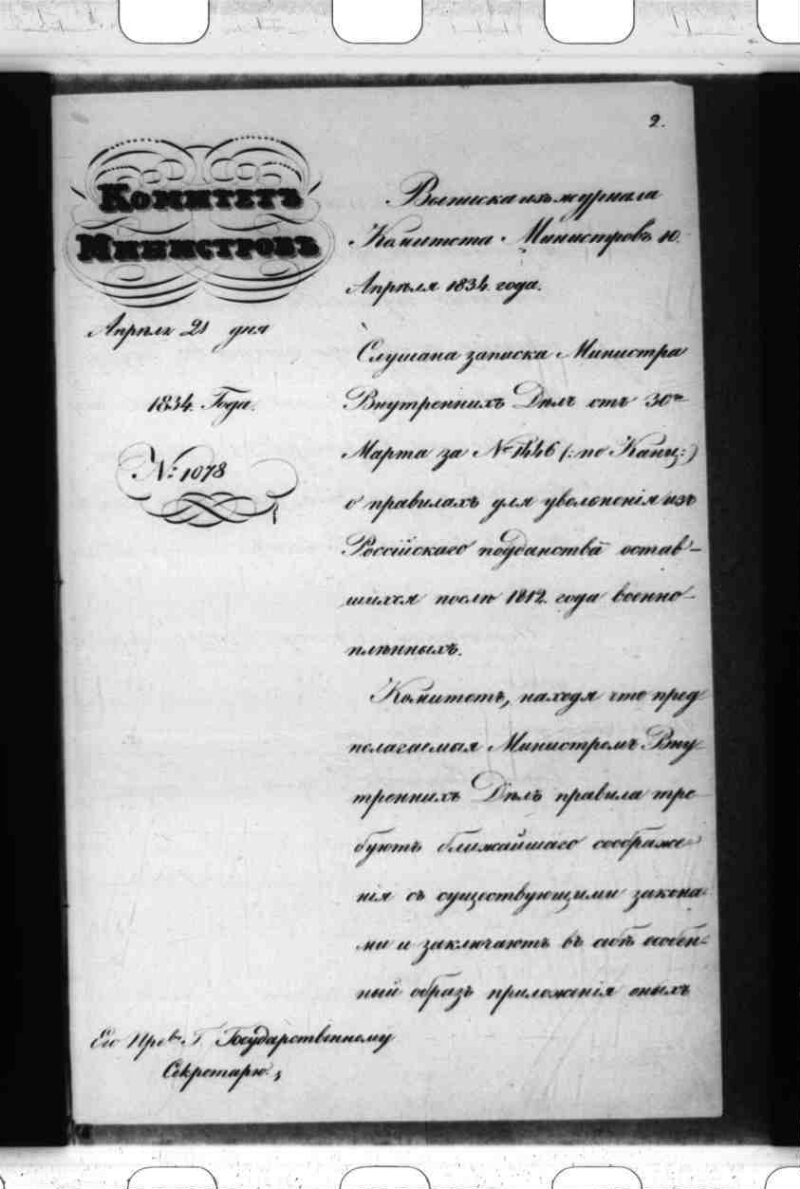 2.
Комитетъ
Министровъ
Апрѣля 21 дня
1834. Года.
№: 1078
Выписка изъ журнала
Комитета Министровъ 10.
Апрѣля 1834. года.
Слушана записка Министра
Внутреннихъ Дѣлъ отъ 30го
Марта за № 1446 (: по Канц:)
о правилахъ для уволененія изъ
Россійскаго подданства остав-
шихся послѣ 1812. года военно-
плѣнныхъ.
Комитетъ, находя что пред
полагаемыя Министромъ Вну-
треннихъ Дѣлъ правила тре
буютъ ближайшаго соображе-
нія съ существующими закона-
ми и заключаютъ въ себѣ особен-
ный образъ приложенія оныхъ
Его Прев. Г. Государственному
Секретарю.